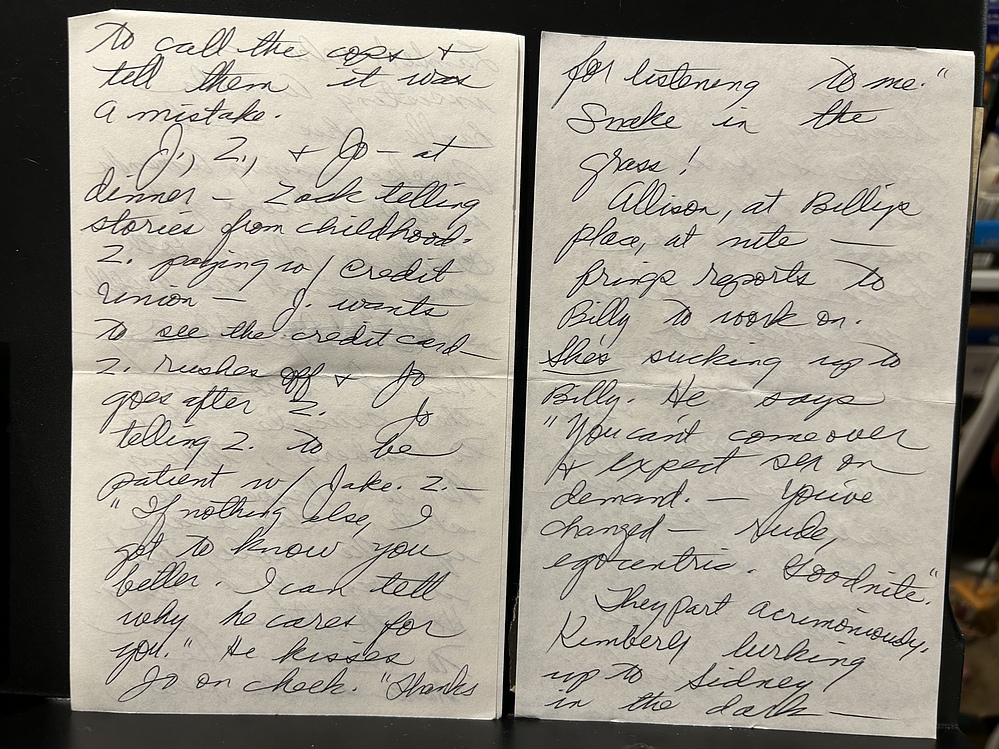 to call the cops +
tell them it was
a mistake.
J., Z., + Jo — at
dinner — Zack telling
stories from childhood.
Z. paying w/ credit
union — J. wants
to see the credit card —
Z. rushes off + Jo
goes after Z. Jo
telling Z. to be
patient w/ Jake. Z. —
"If nothing else, I
got to know you
better. I can tell
why he cares for
you." He kisses
Jo on cheek. "Thanks
for listening to me."
Snake in the
grass!
Allison, at Billy's
place, at nite —
brings reports to
Billy to work on.
She's sucking up to
Billy. He says
"You can't come over
+ expect sex on
demand. — You've
changed — rude,
egocentric. Goodnite."
They part acrimoniously.
Kimberly lurking
up to Sidney
in the dark —